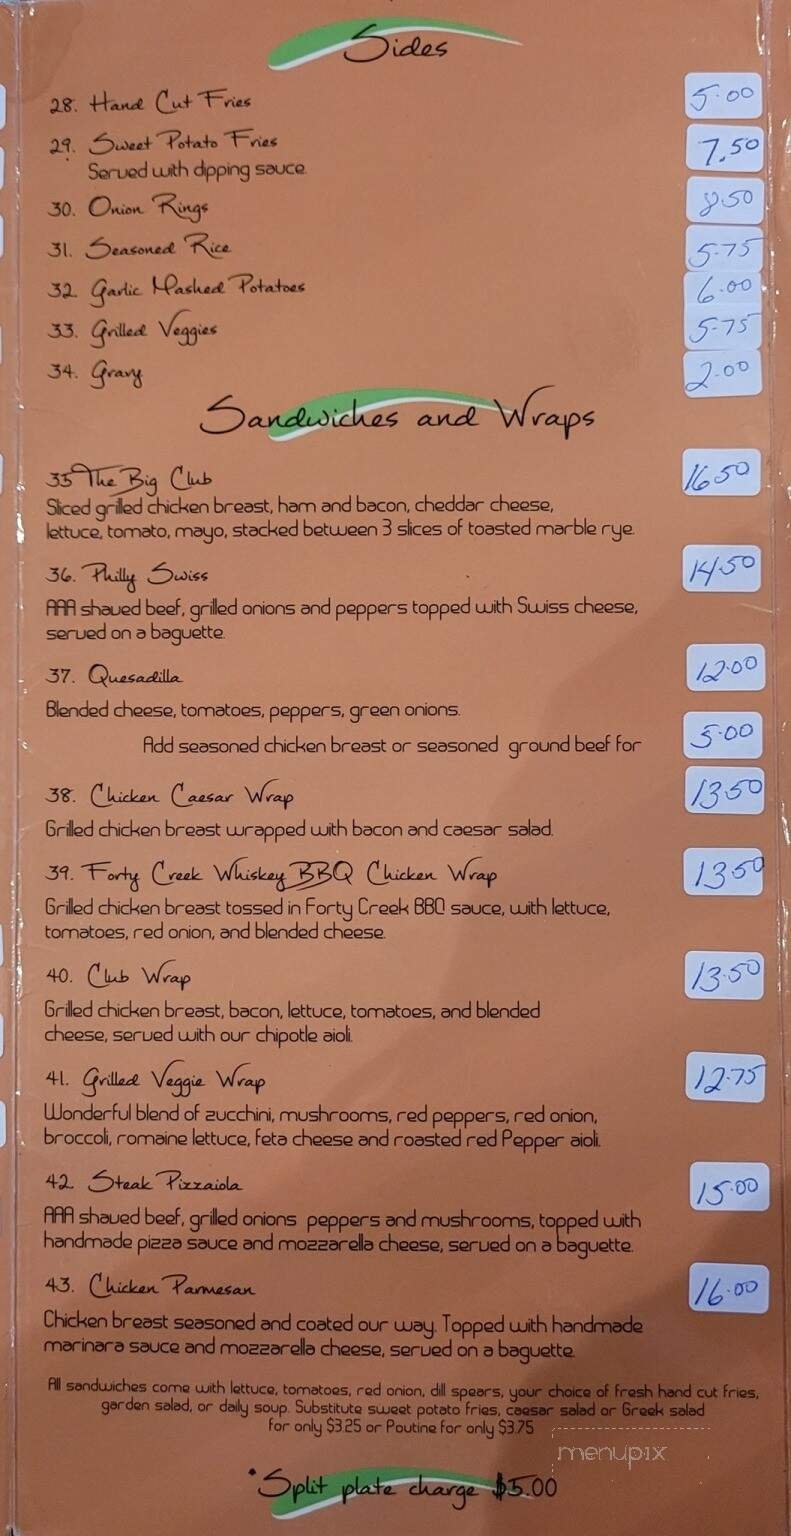 Sides
28. Hand Cut Fries 5.00
29. Sweet Potato Fries 7.50
Served with dipping sauce.
30. Onion Rings 8.50
31. Seasoned Rice 5.75
32. Garlic Mashed Potatoes 6.00
33. Grilled Veggies 5.75
34. Gravy 2.00
Sandwiches and Wraps
35 The Big Club 16.50
Sliced grilled chicken breast, ham and bacon, cheddar cheese,
lettuce, tomato, mayo, stacked between 3 slices of toasted marble rye.
36. Philly Swiss 14.50
AAA shaved beef, grilled onions and peppers topped with Swiss cheese,
served on a baguette.
37. Quesadilla 12.00
Blended cheese, tomatoes, peppers, green onions.
Add seasoned chicken breast or seasoned ground beef for 5.00
38. Chicken Caesar Wrap 13.50
Grilled chicken breast wrapped with bacon and caesar salad.
39. Forty Creek Whiskey BBQ Chicken Wrap 13.50
Grilled chicken breast tossed in Forty Creek BBQ sauce, with lettuce,
tomatoes, red onion, and blended cheese.
40. Club Wrap 13.50
Grilled chicken breast, bacon, lettuce, tomatoes, and blended
cheese, served with our chipotle aioli.
41. Grilled Veggie Wrap 12.75
Wonderful blend of zucchini, mushrooms, red peppers, red onion,
broccoli, romaine lettuce, feta cheese and roasted red Pepper aioli.
42. Steak Pizzaiola 15.00
AAA shaved beef, grilled onions peppers and mushrooms, topped with
handmade pizza sauce and mozzarella cheese, served on a baguette.
43. Chicken Parmesan 16.00
Chicken breast seasoned and coated our way. Topped with handmade
marinara sauce and mozzarella cheese, served on a baguette.
All sandwiches come with lettuce, tomatoes, red onion, dill spears, your choice of fresh hand cut fries,
garden salad, or daily soup. Substitute sweet potato fries, caesar salad or Greek salad
for only $3.25 or Poutine for only $3.75
menupix
*Split plate charge $5.00